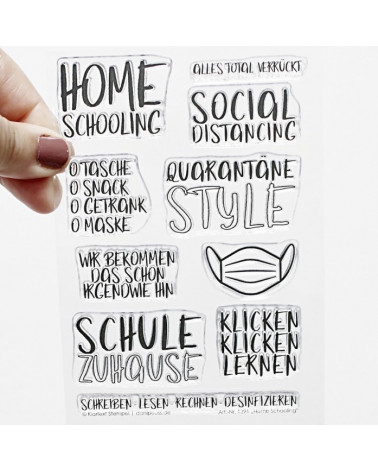 HOME
SCHOOLING
ALLES TOTAL VERRÜCKT
SOCIAL
DISTANCING
O TASCHE
O SNACK
O GETRÄNK
O MASKE
QUARANTÄNE
STYLE
WIR BEKOMMEN
DAS SCHON
IRGENDWIE HIN
SCHULE
ZUHAUSE
KLICKEN
KLICKEN
LERNEN
SCHREIBEN · LESEN · RECHNEN · DESINFIZIEREN
"Home Schooling"